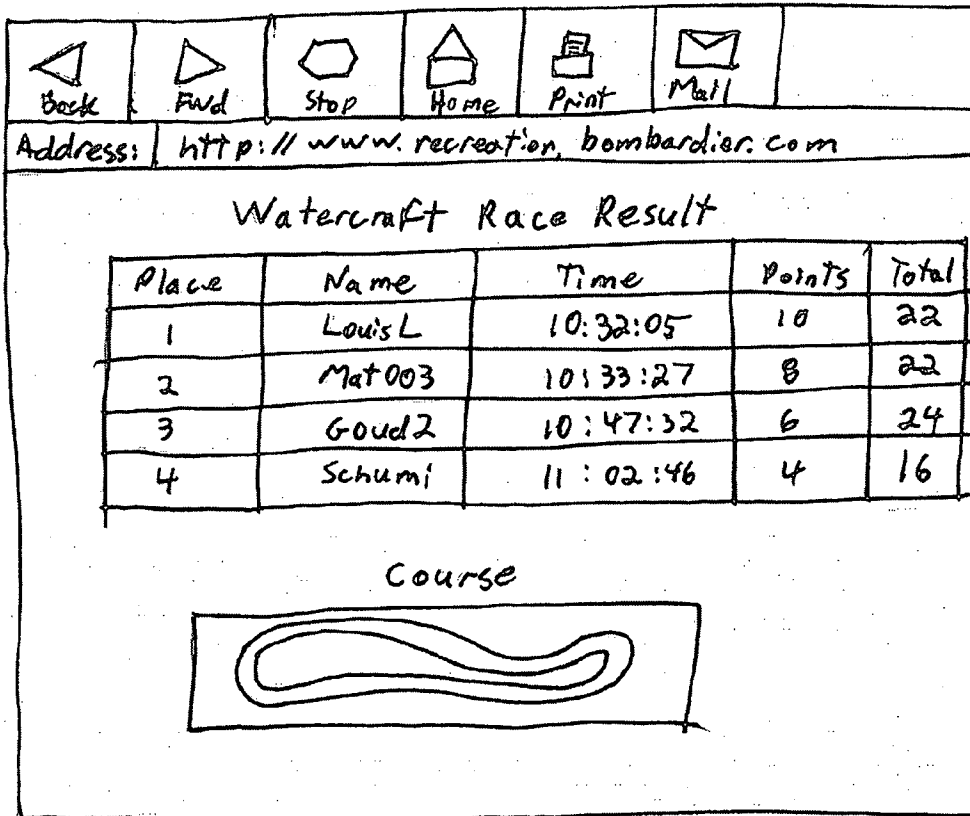 Back Fwd Stop Home Print Mail
Address: http://www.recreation.bombardier.com
Watercraft Race Result
Place Name Time Points Total
1 Louis L 10:32:05 10 22
2 Mat003 10:33:27 8 22
3 Goud2 10:47:32 6 24
4 Schumi 11:02:46 4 16
Course